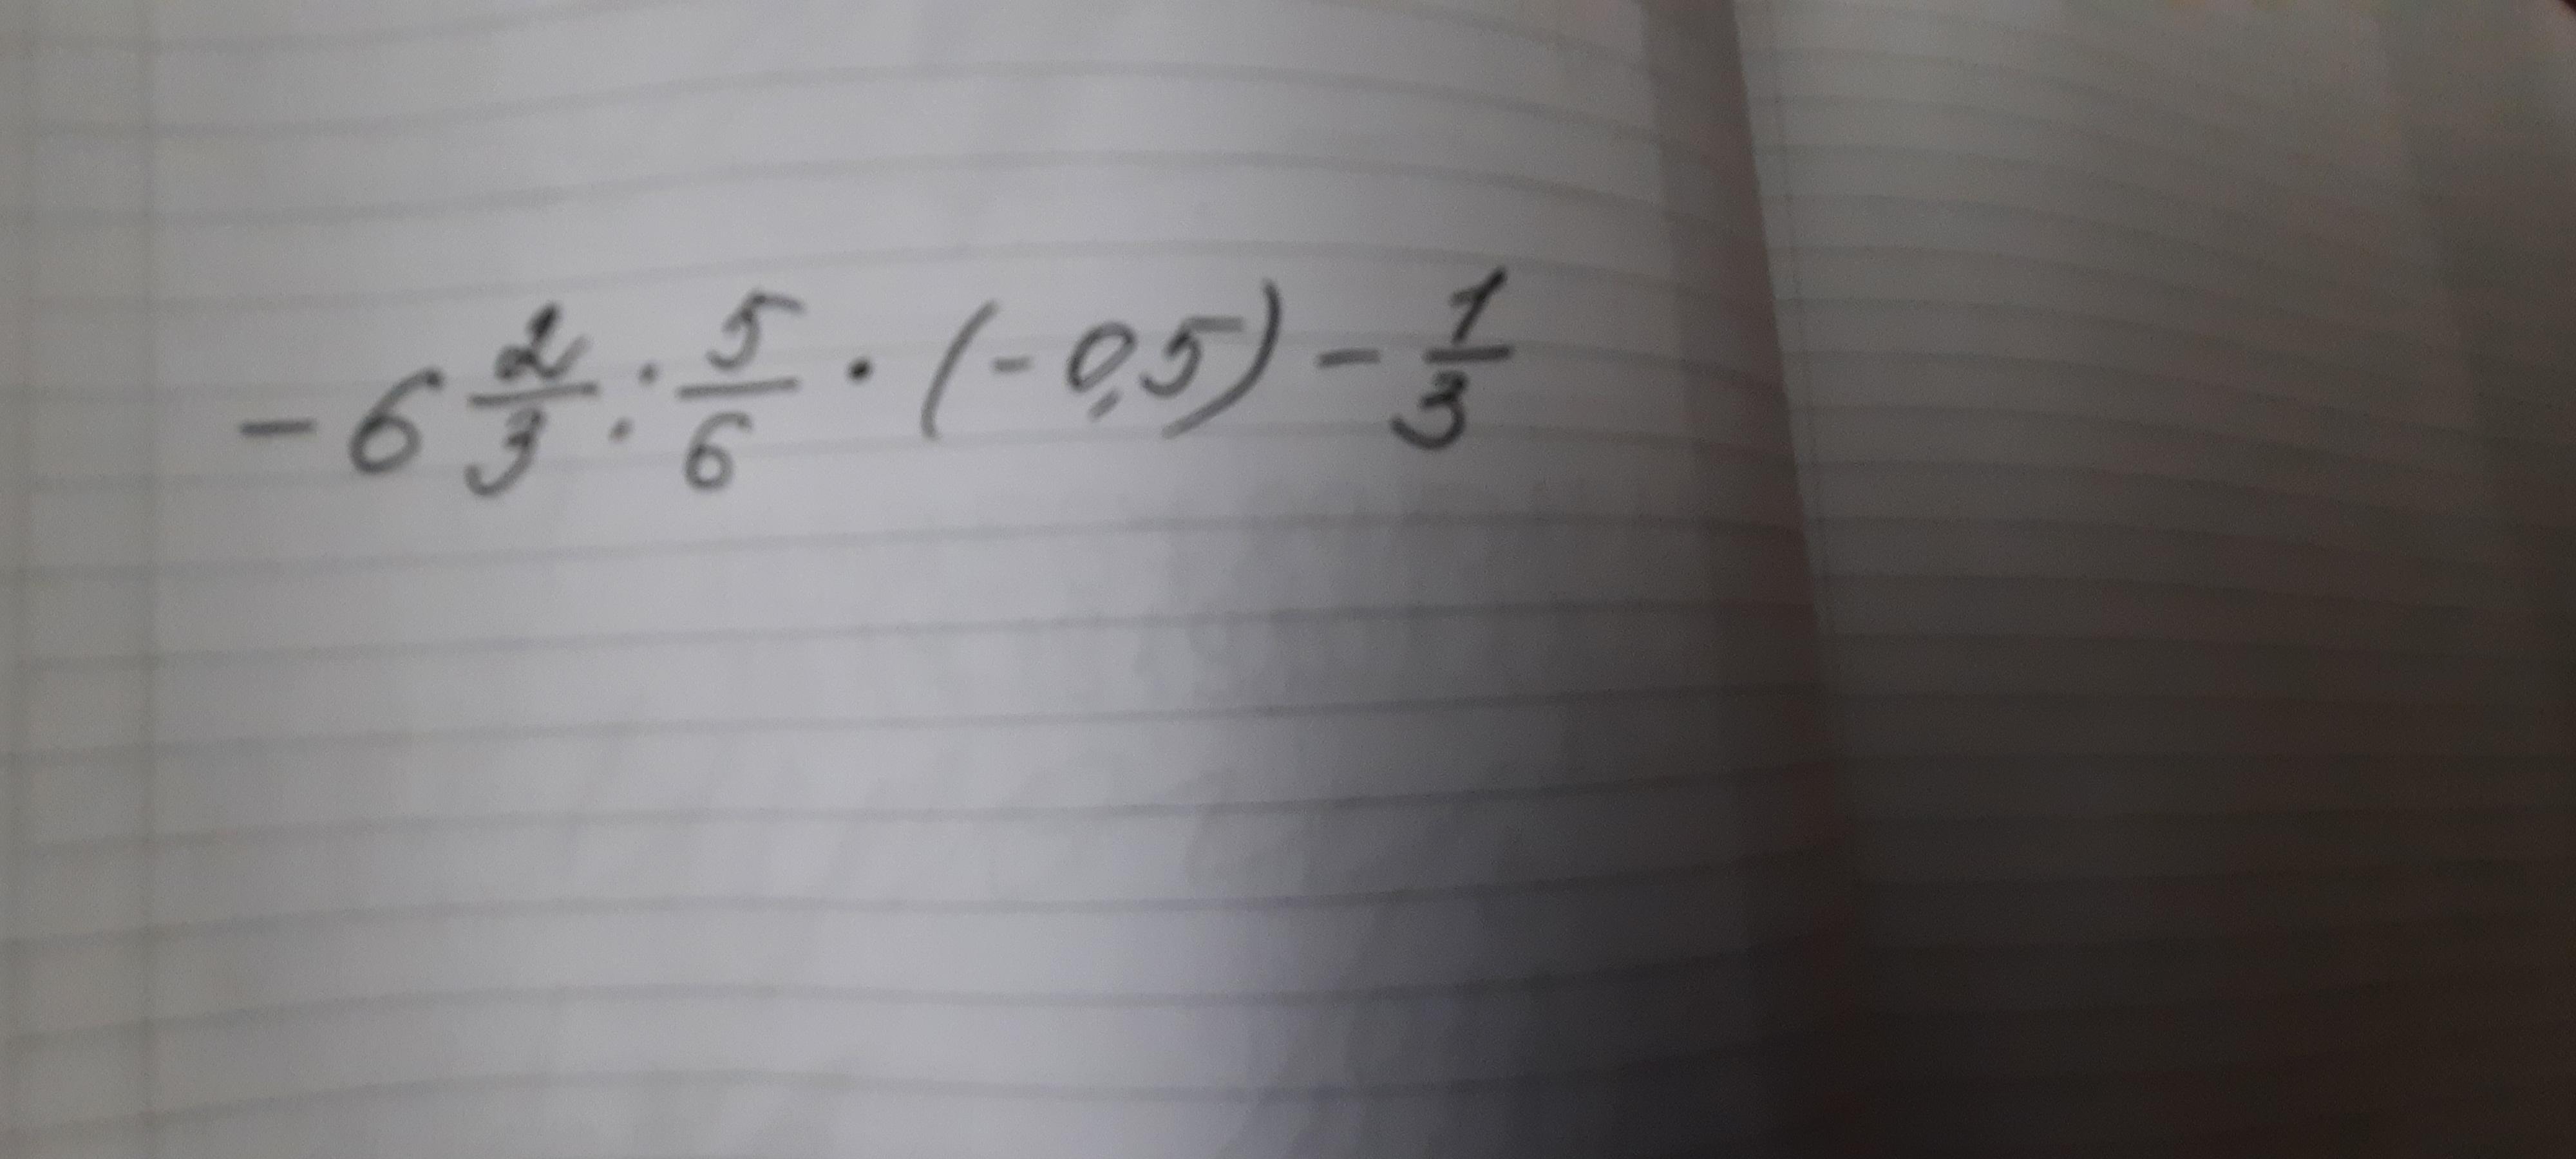 -6 2/3 : 5/6 · (-0,5) - 1/3